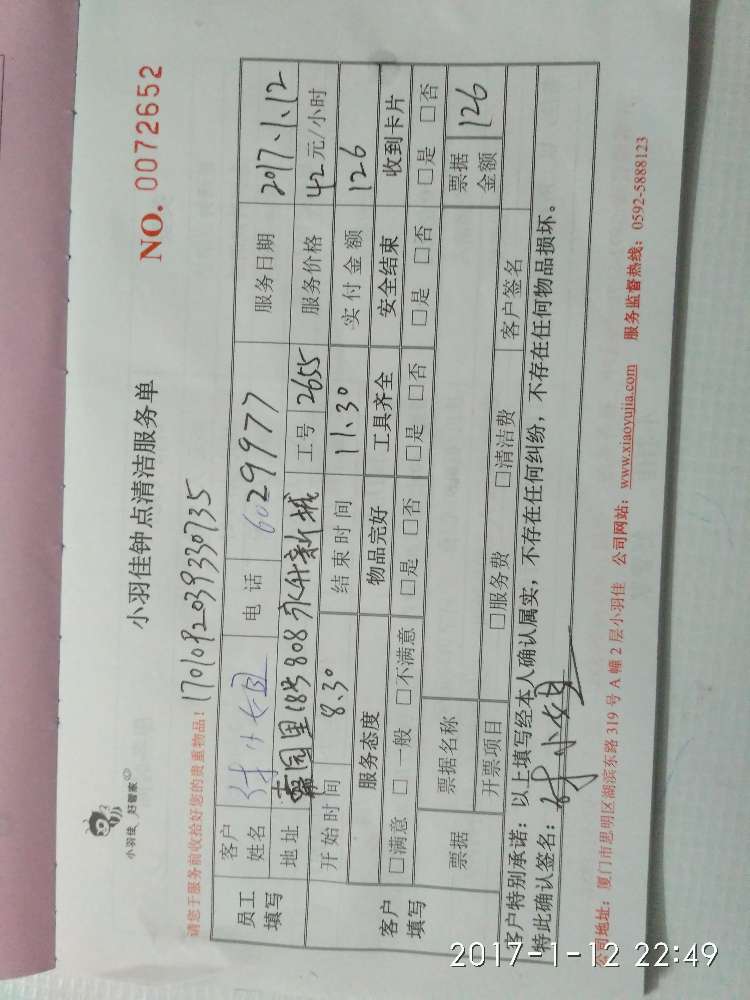 小羽佳 好管家
小羽佳钟点清洁服务单
NO. 0072652
请您于服务前收拾好您的贵重物品!
170109203933073​5
员工填写 客户姓名 林小姐 电话 6029977 服务日期 2017.1.12
地址 嘉园里18号808永升新城 工号 2655 服务价格 42元/小时
客户填写 开始时间 8.30 结束时间 11.30 实付金额 126
服务态度 物品完好 工具齐全 安全结束 收到卡片
□满意 □一般 □不满意 □是 □否 □是 □否 □是 □否 □是 □否
票据 票据名称 票据金额 126
开票项目 □服务费 □清洁费 客户签名
客户特别承诺:以上填写经本人确认属实,不存在任何纠纷,不存在任何物品损坏。
特此确认签名:林小姐
公司地址:厦门市思明区湖滨东路319号A幢2层小羽佳 公司网站:www.xiaoyujia.com 服务监督热线:0592-5888123
2017-1-12 22:49